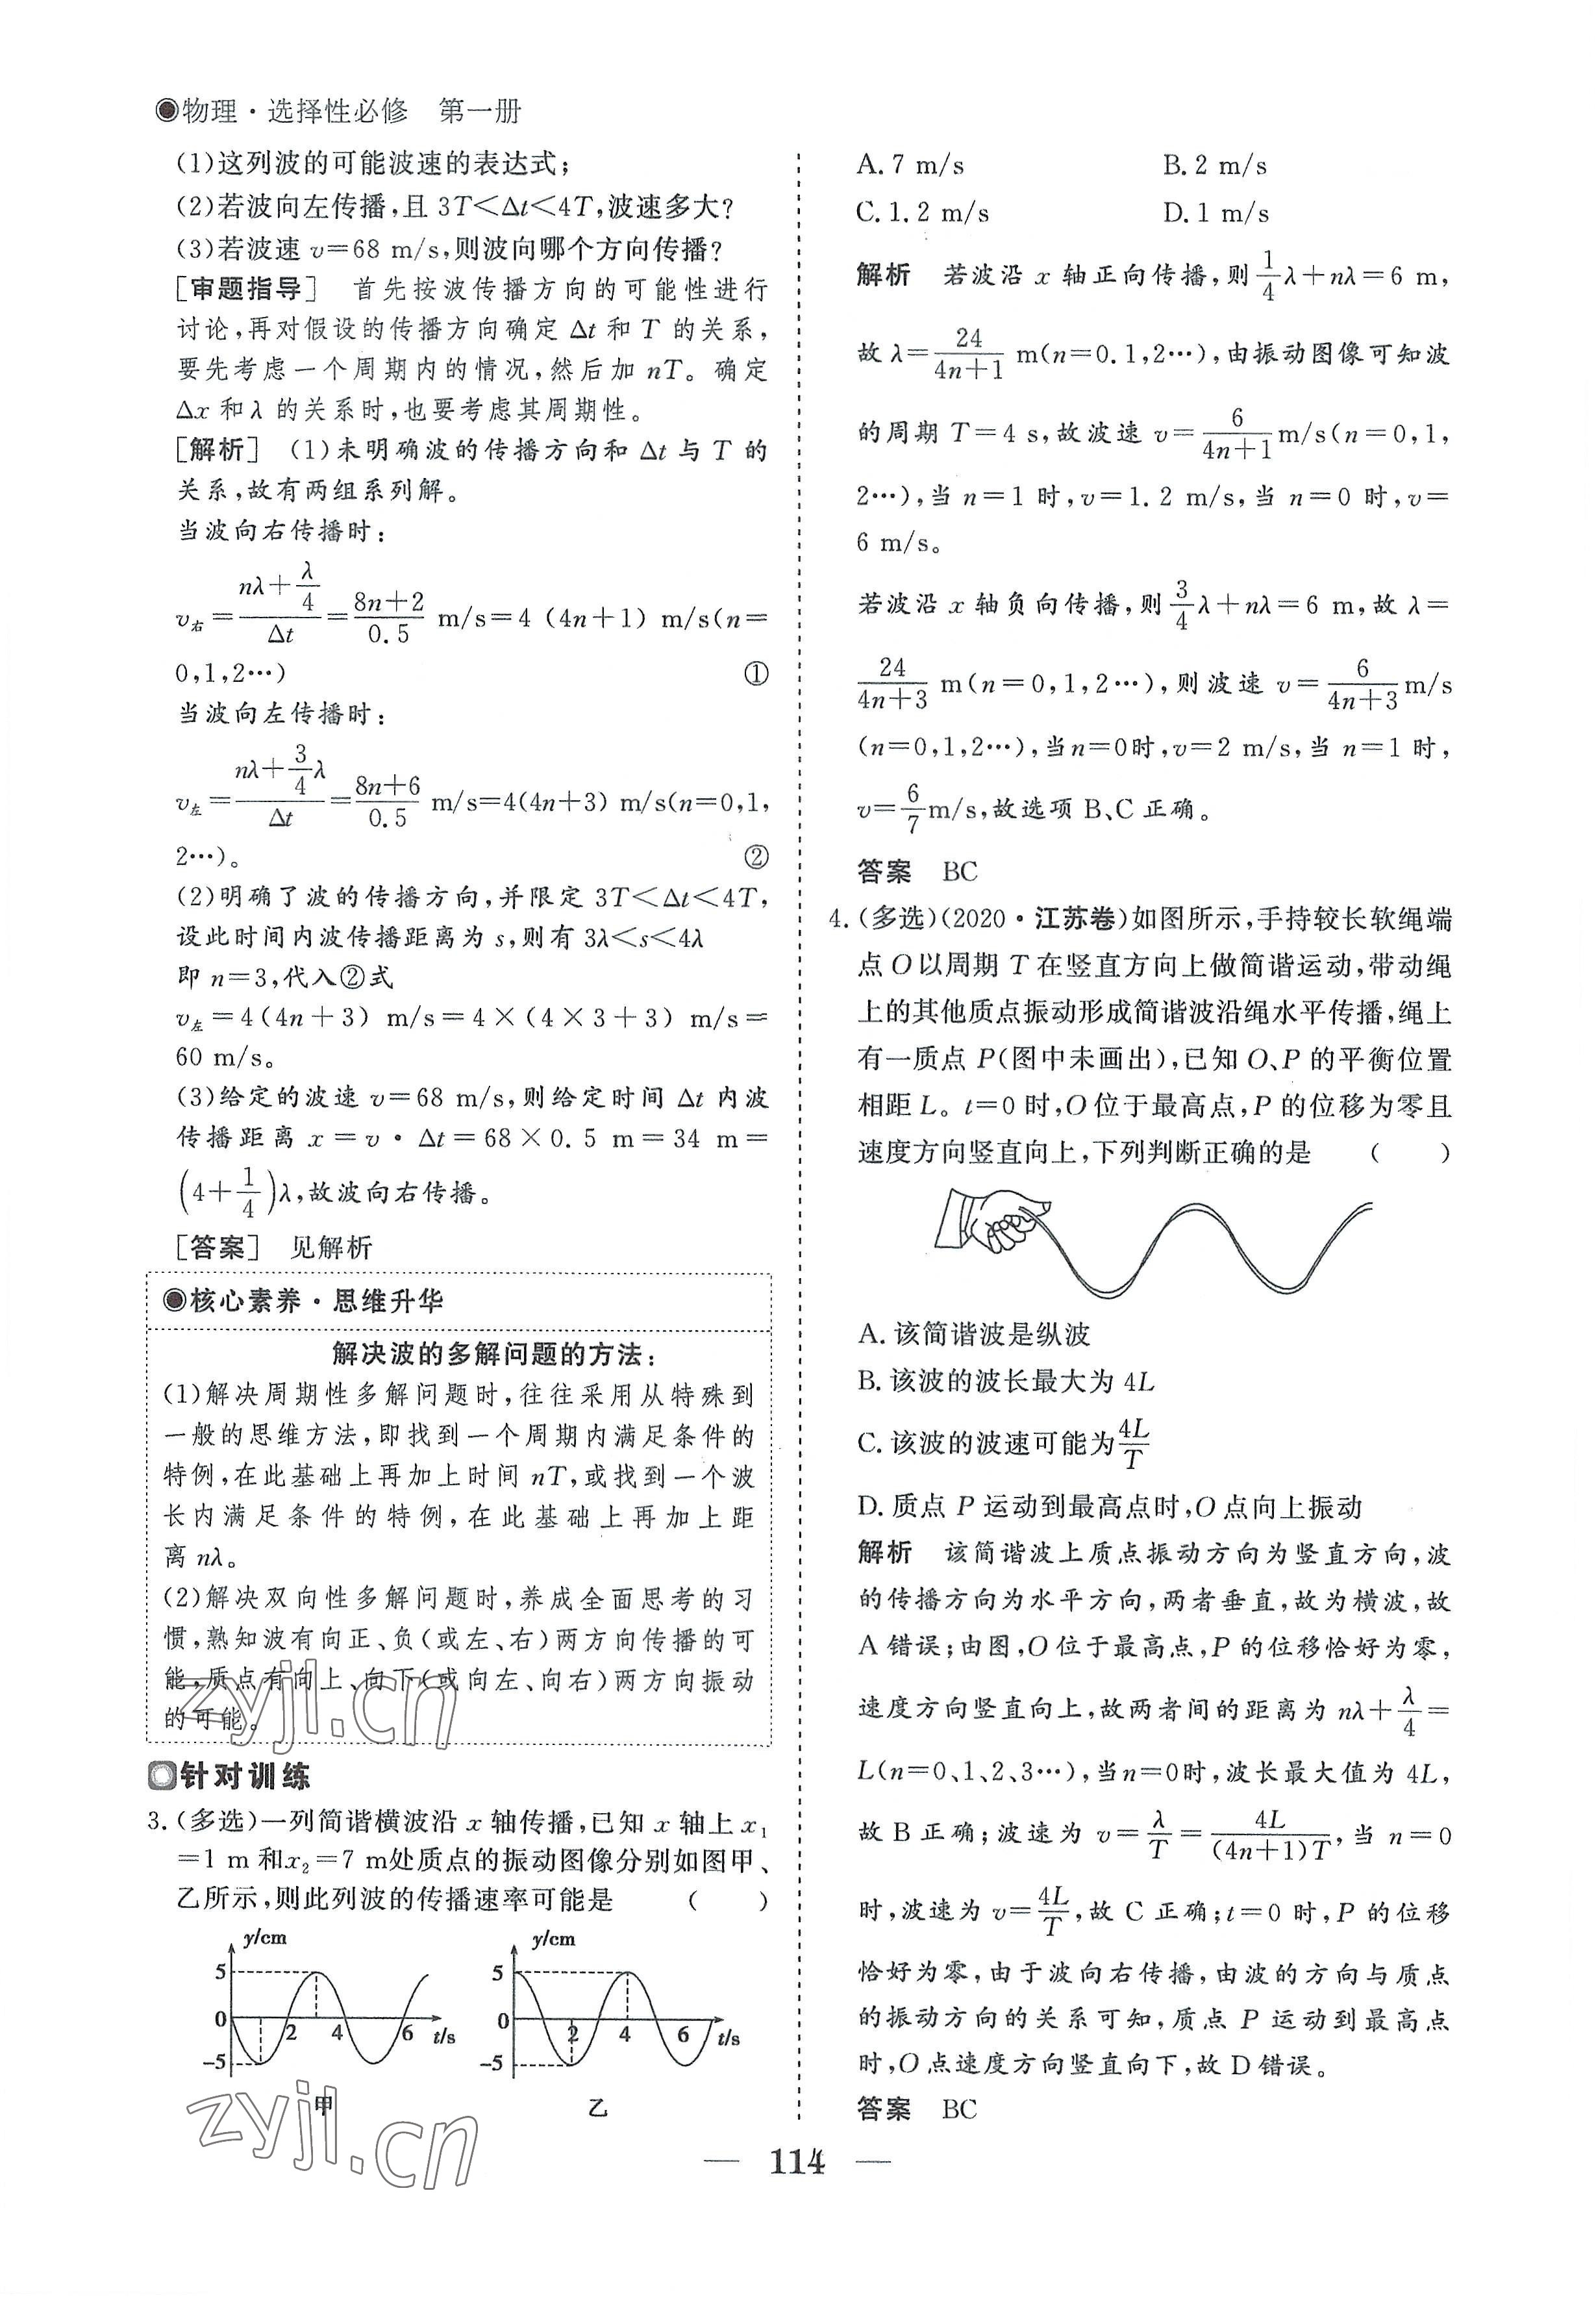 物理·选择性必修 第一册
(1)这列波的可能波速的表达式;
(2)若波向左传播,且 3T<Δt<4T,波速多大?
(3)若波速 v=68 m/s,则波向哪个方向传播?
[审题指导] 首先按波传播方向的可能性进行
讨论,再对假设的传播方向确定 Δt 和 T 的关系,
要先考虑一个周期内的情况,然后加 nT。确定
Δx 和 λ 的关系时,也要考虑其周期性。
[解析] (1)未明确波的传播方向和 Δt 与 T 的
关系,故有两组系列解。
当波向右传播时:
v右=(nλ+λ/4)/Δt=(8n+2)/0.5 m/s=4 (4n+1) m/s(n=
0,1,2…) ①
当波向左传播时:
v左=(nλ+3/4λ)/Δt=(8n+6)/0.5 m/s=4(4n+3) m/s(n=0,1,
2…)。 ②
(2)明确了波的传播方向,并限定 3T<Δt<4T,
设此时间内波传播距离为 s,则有 3λ<s<4λ
即 n=3,代入②式
v左=4(4n+3) m/s=4×(4×3+3) m/s=
60 m/s。
(3)给定的波速 v=68 m/s,则给定时间 Δt 内波
传播距离 x=v·Δt=68×0.5 m=34 m=
(4+1/4)λ,故波向右传播。
[答案] 见解析
核心素养·思维升华
解决波的多解问题的方法:
(1)解决周期性多解问题时,往往采用从特殊到
一般的思维方法,即找到一个周期内满足条件的
特例,在此基础上再加上时间 nT,或找到一个波
长内满足条件的特例,在此基础上再加上距
离 nλ。
(2)解决双向性多解问题时,养成全面思考的习
惯,熟知波有向正、负(或左、右)两方向传播的可
能,质点有向上、向下(或向左、向右)两方向振动
的可能。
zyjl.cn
针对训练
3.(多选)一列简谐横波沿 x 轴传播,已知 x 轴上 x₁
=1 m 和x₂=7 m处质点的振动图像分别如图甲、
乙所示,则此列波的传播速率可能是 ( )
y/cm
5
0
-5
2 4 6 t/s
甲
y/cm
5
0
-5
2 4 6 t/s
乙
zyjl.cn
A.7 m/s B.2 m/s
C.1.2 m/s D.1 m/s
解析 若波沿 x 轴正向传播,则1/4λ+nλ=6 m,
故 λ=24/(4n+1) m(n=0.1,2…),由振动图像可知波
的周期 T=4 s,故波速 v=6/(4n+1)m/s(n=0,1,
2…),当 n=1 时,v=1.2 m/s,当 n=0 时,v=
6 m/s。
若波沿 x 轴负向传播,则3/4λ+nλ=6 m,故 λ=
24/(4n+3) m(n=0,1,2…),则波速 v=6/(4n+3)m/s
(n=0,1,2…),当n=0时,v=2 m/s,当 n=1 时,
v=6/7m/s,故选项 B、C 正确。
答案 BC
4.(多选)(2020·江苏卷)如图所示,手持较长软绳端
点 O 以周期 T 在竖直方向上做简谐运动,带动绳
上的其他质点振动形成简谐波沿绳水平传播,绳上
有一质点 P(图中未画出),已知 O、P 的平衡位置
相距 L。t=0 时,O 位于最高点,P 的位移为零且
速度方向竖直向上,下列判断正确的是 ( )
A.该简谐波是纵波
B.该波的波长最大为 4L
C.该波的波速可能为4L/T
D.质点 P 运动到最高点时,O 点向上振动
解析 该简谐波上质点振动方向为竖直方向,波
的传播方向为水平方向,两者垂直,故为横波,故
A 错误;由图,O 位于最高点,P 的位移恰好为零,
速度方向竖直向上,故两者间的距离为 nλ+λ/4=
L(n=0、1、2、3…),当n=0时,波长最大值为 4L,
故 B 正确;波速为 v=λ/T=4L/(4n+1)T,当 n=0
时,波速为 v=4L/T,故 C 正确;t=0 时,P 的位移
恰好为零,由于波向右传播,由波的方向与质点
的振动方向的关系可知,质点 P 运动到最高点
时,O 点速度方向竖直向下,故 D 错误。
答案 BC
— 114 —